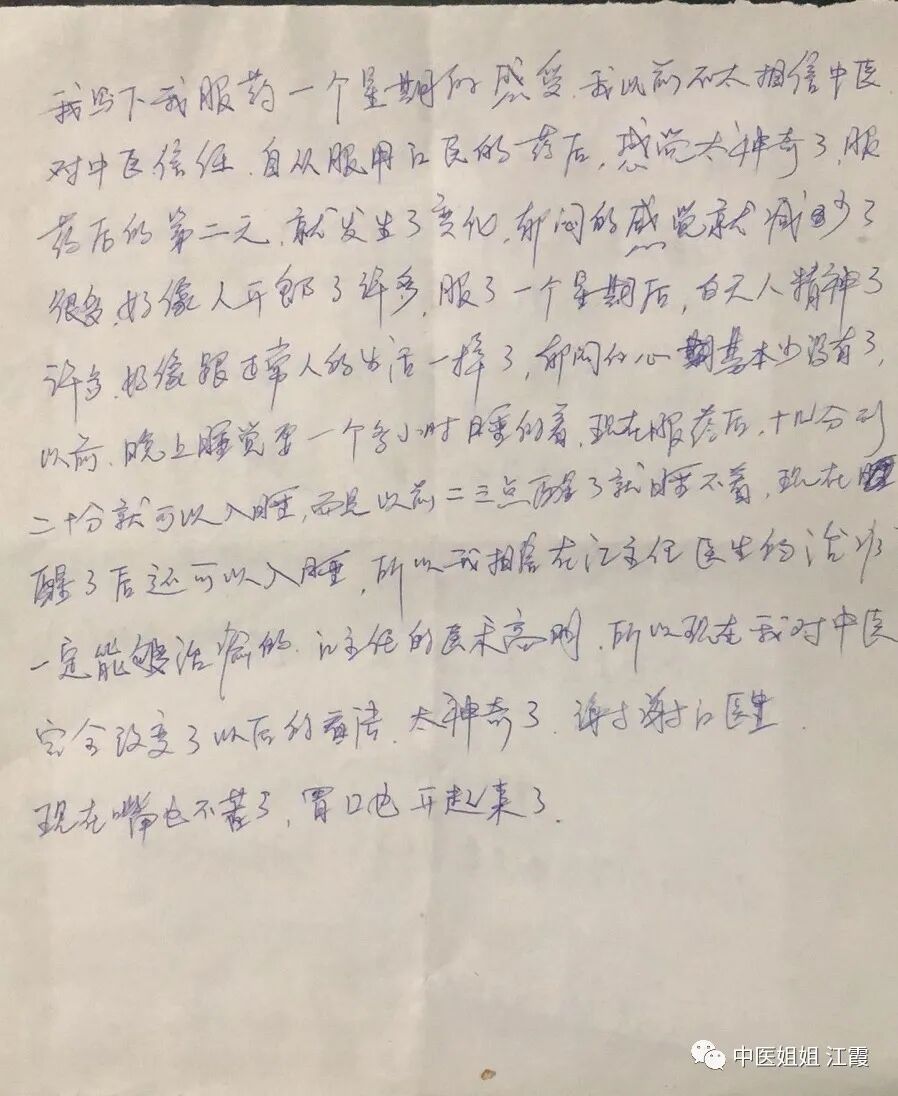 我写下我服药一个星期的感受.我以前不太相信中医
对中医信任.自从服用江医的药后,感觉太神奇了,服
药后的第二天.就发生了变化,郁闷的感觉就减少了
很多,好像人开朗了许多,服了一个星期后,白天人精神了
许多,好像跟正常人的生活一样了,郁闷的心 基本少没有了,
以前.晚上睡觉要一个多小时睡的着,现在服药后,十几分到
二十分就可以入睡,而且以前二三点醒了就睡不着,现在
醒了后还可以入睡,所以我相信在江主任医生的治疗
一定能够治愈的.江主任的医术高明.所以现在我对中医
完全改变了以后的看法.太神奇了.谢谢江医生.
现在嘴也不苦了,胃口也开起来了.
中医姐姐 江霞